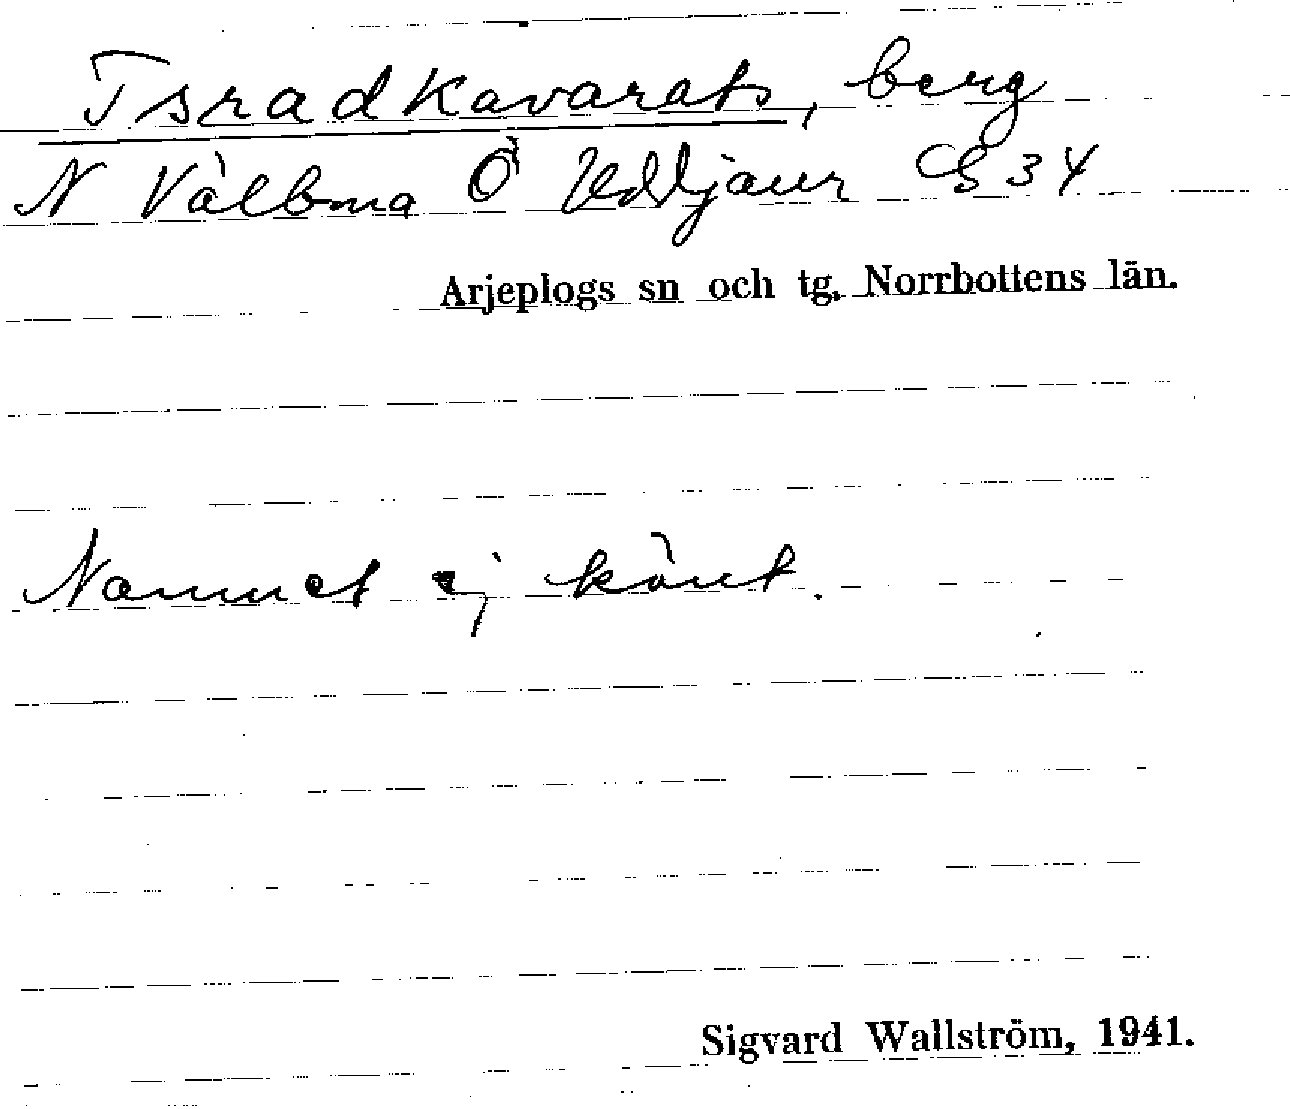 Tsradkavarats, berg
N Válbma Ö Uddjaur G 34
Arjeplogs sn och tg. Norrbottens län.
Namnet ej känt.
Sigvard Wallström, 1941.